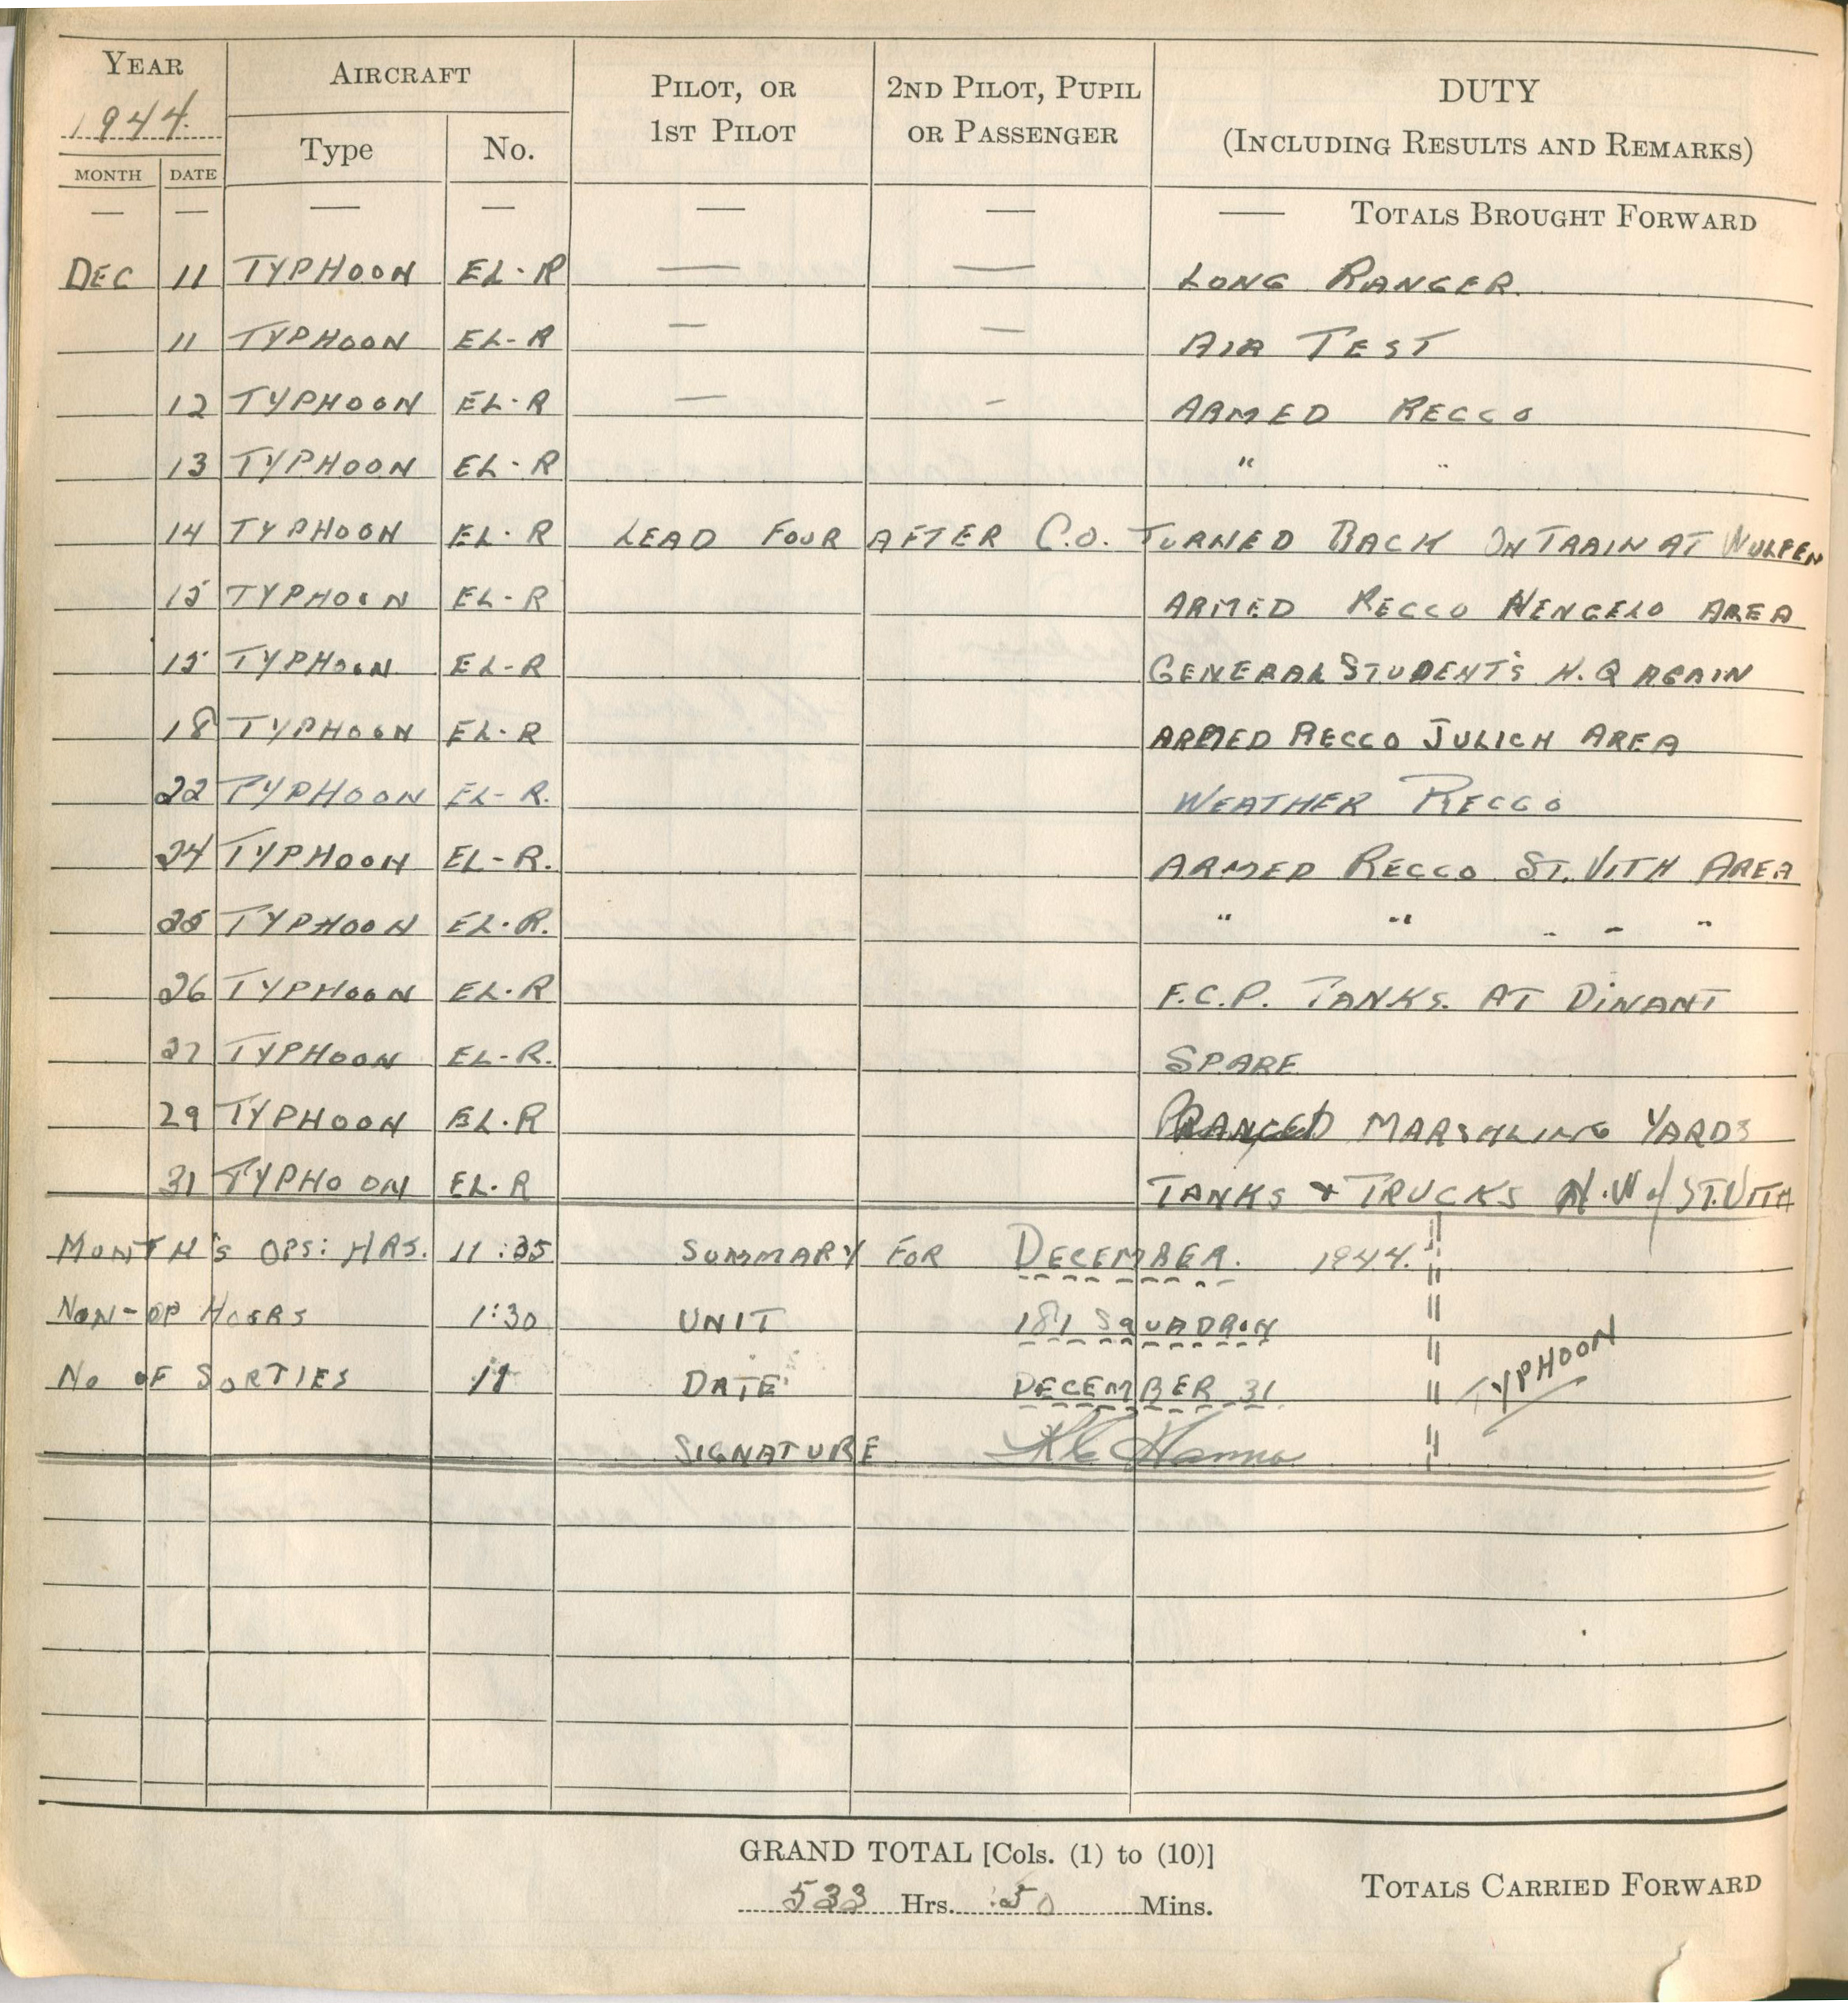 YEAR AIRCRAFT PILOT, OR 2ND PILOT, PUPIL DUTY
1944. Type No. 1ST PILOT OR PASSENGER (INCLUDING RESULTS AND REMARKS)
MONTH DATE
— — — — — — — TOTALS BROUGHT FORWARD
DEC 11 TYPHOON EL-R — — LONG RANGER.
11 TYPHOON EL-R — — AIR TEST
12 TYPHOON EL-R — — ARMED RECCO
13 TYPHOON EL-R " "
14 TYPHOON EL-R LEAD FOUR AFTER C.O. TURNED BACK ON TRAIN AT WULFEN
15 TYPHOON EL-R ARMED RECCO HENGELO AREA
15 TYPHOON EL-R GENERAL STUDENT'S H.Q AGAIN
18 TYPHOON EL-R ARMED RECCO JULICH AREA
22 TYPHOON EL-R. WEATHER RECCO
24 TYPHOON EL-R. ARMED RECCO ST. VITH AREA
25 TYPHOON EL-R. " " " " "
26 TYPHOON EL-R F.C.P. TANKS. AT DINANT
27 TYPHOON EL-R. SPARE
29 TYPHOON EL-R PRANGED MARSHLING YARDS
31 TYPHOON EL-R TANKS + TRUCKS N.W of ST.VITH
MONTH'S OPS: HRS. 11:35 SUMMARY FOR DECEMBER. 1944.
NON-OP HOURS 1:30 UNIT 181 SQUADRON
No OF SORTIES 11 DATE DECEMBER 31 TYPHOON
SIGNATURE Hanna
GRAND TOTAL [Cols. (1) to (10)]
533 Hrs. :50 Mins. TOTALS CARRIED FORWARD